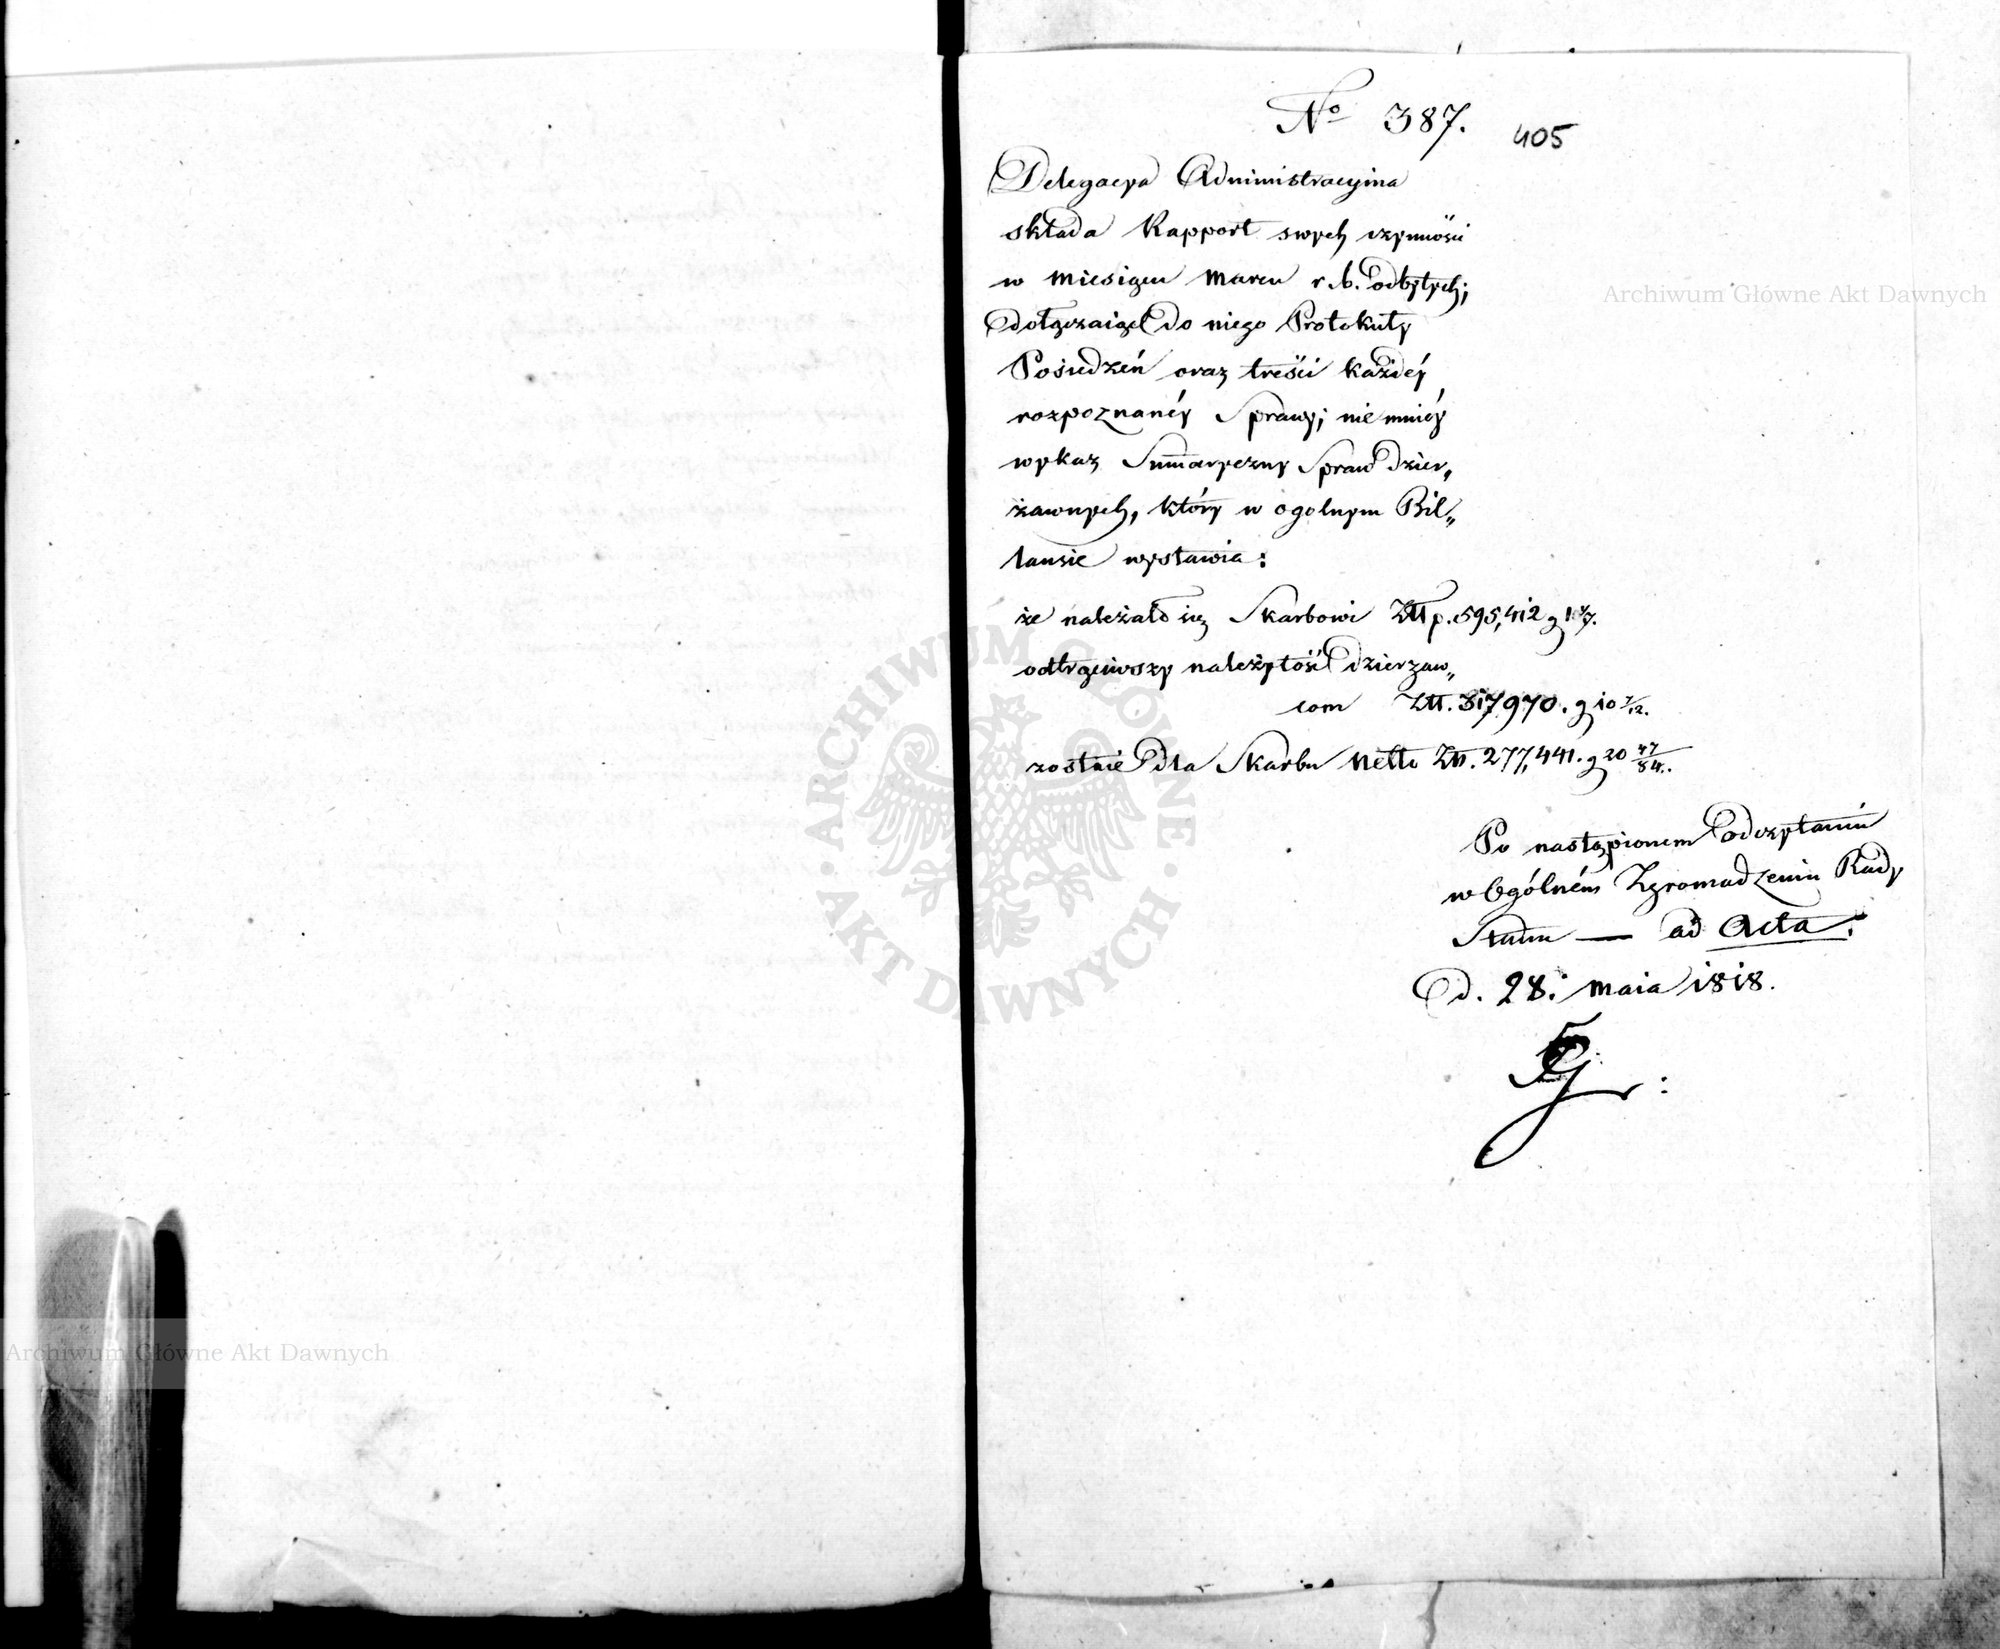 No 387.
405
Delegacya Administracyina
składa Rapport swych czynności
w miesiącu Marcu r. b. odbytych;
dołączaiąc do niego Protokuły
Posiedzeń oraz treści każdéy
rozpoznanéy Sprawy; nie mniéy
wykaz Summaryczny Spraw dzier„
żawnych, który w ogolnym Bil„
lansie wystawia:
że należało się Skarbowi Złłp. 595,412 g
odtrąciwszy należytość dzierżaw„
com Złł. 317970. g 10 7/12.
zostaie dla Skarbu Netto Zł. 277,441. g 20 47/84.
Po nastąpionem odczytaniu
w Ogólném Zgromadzeniu Rady
Stanu — ad Acta.
d. 28. Maia 1818.
Archiwum Główne Akt Dawnych
Archiwum Główne Akt Dawnych
ARCHIWUM GŁÓWNE
AKT DAWNYCH